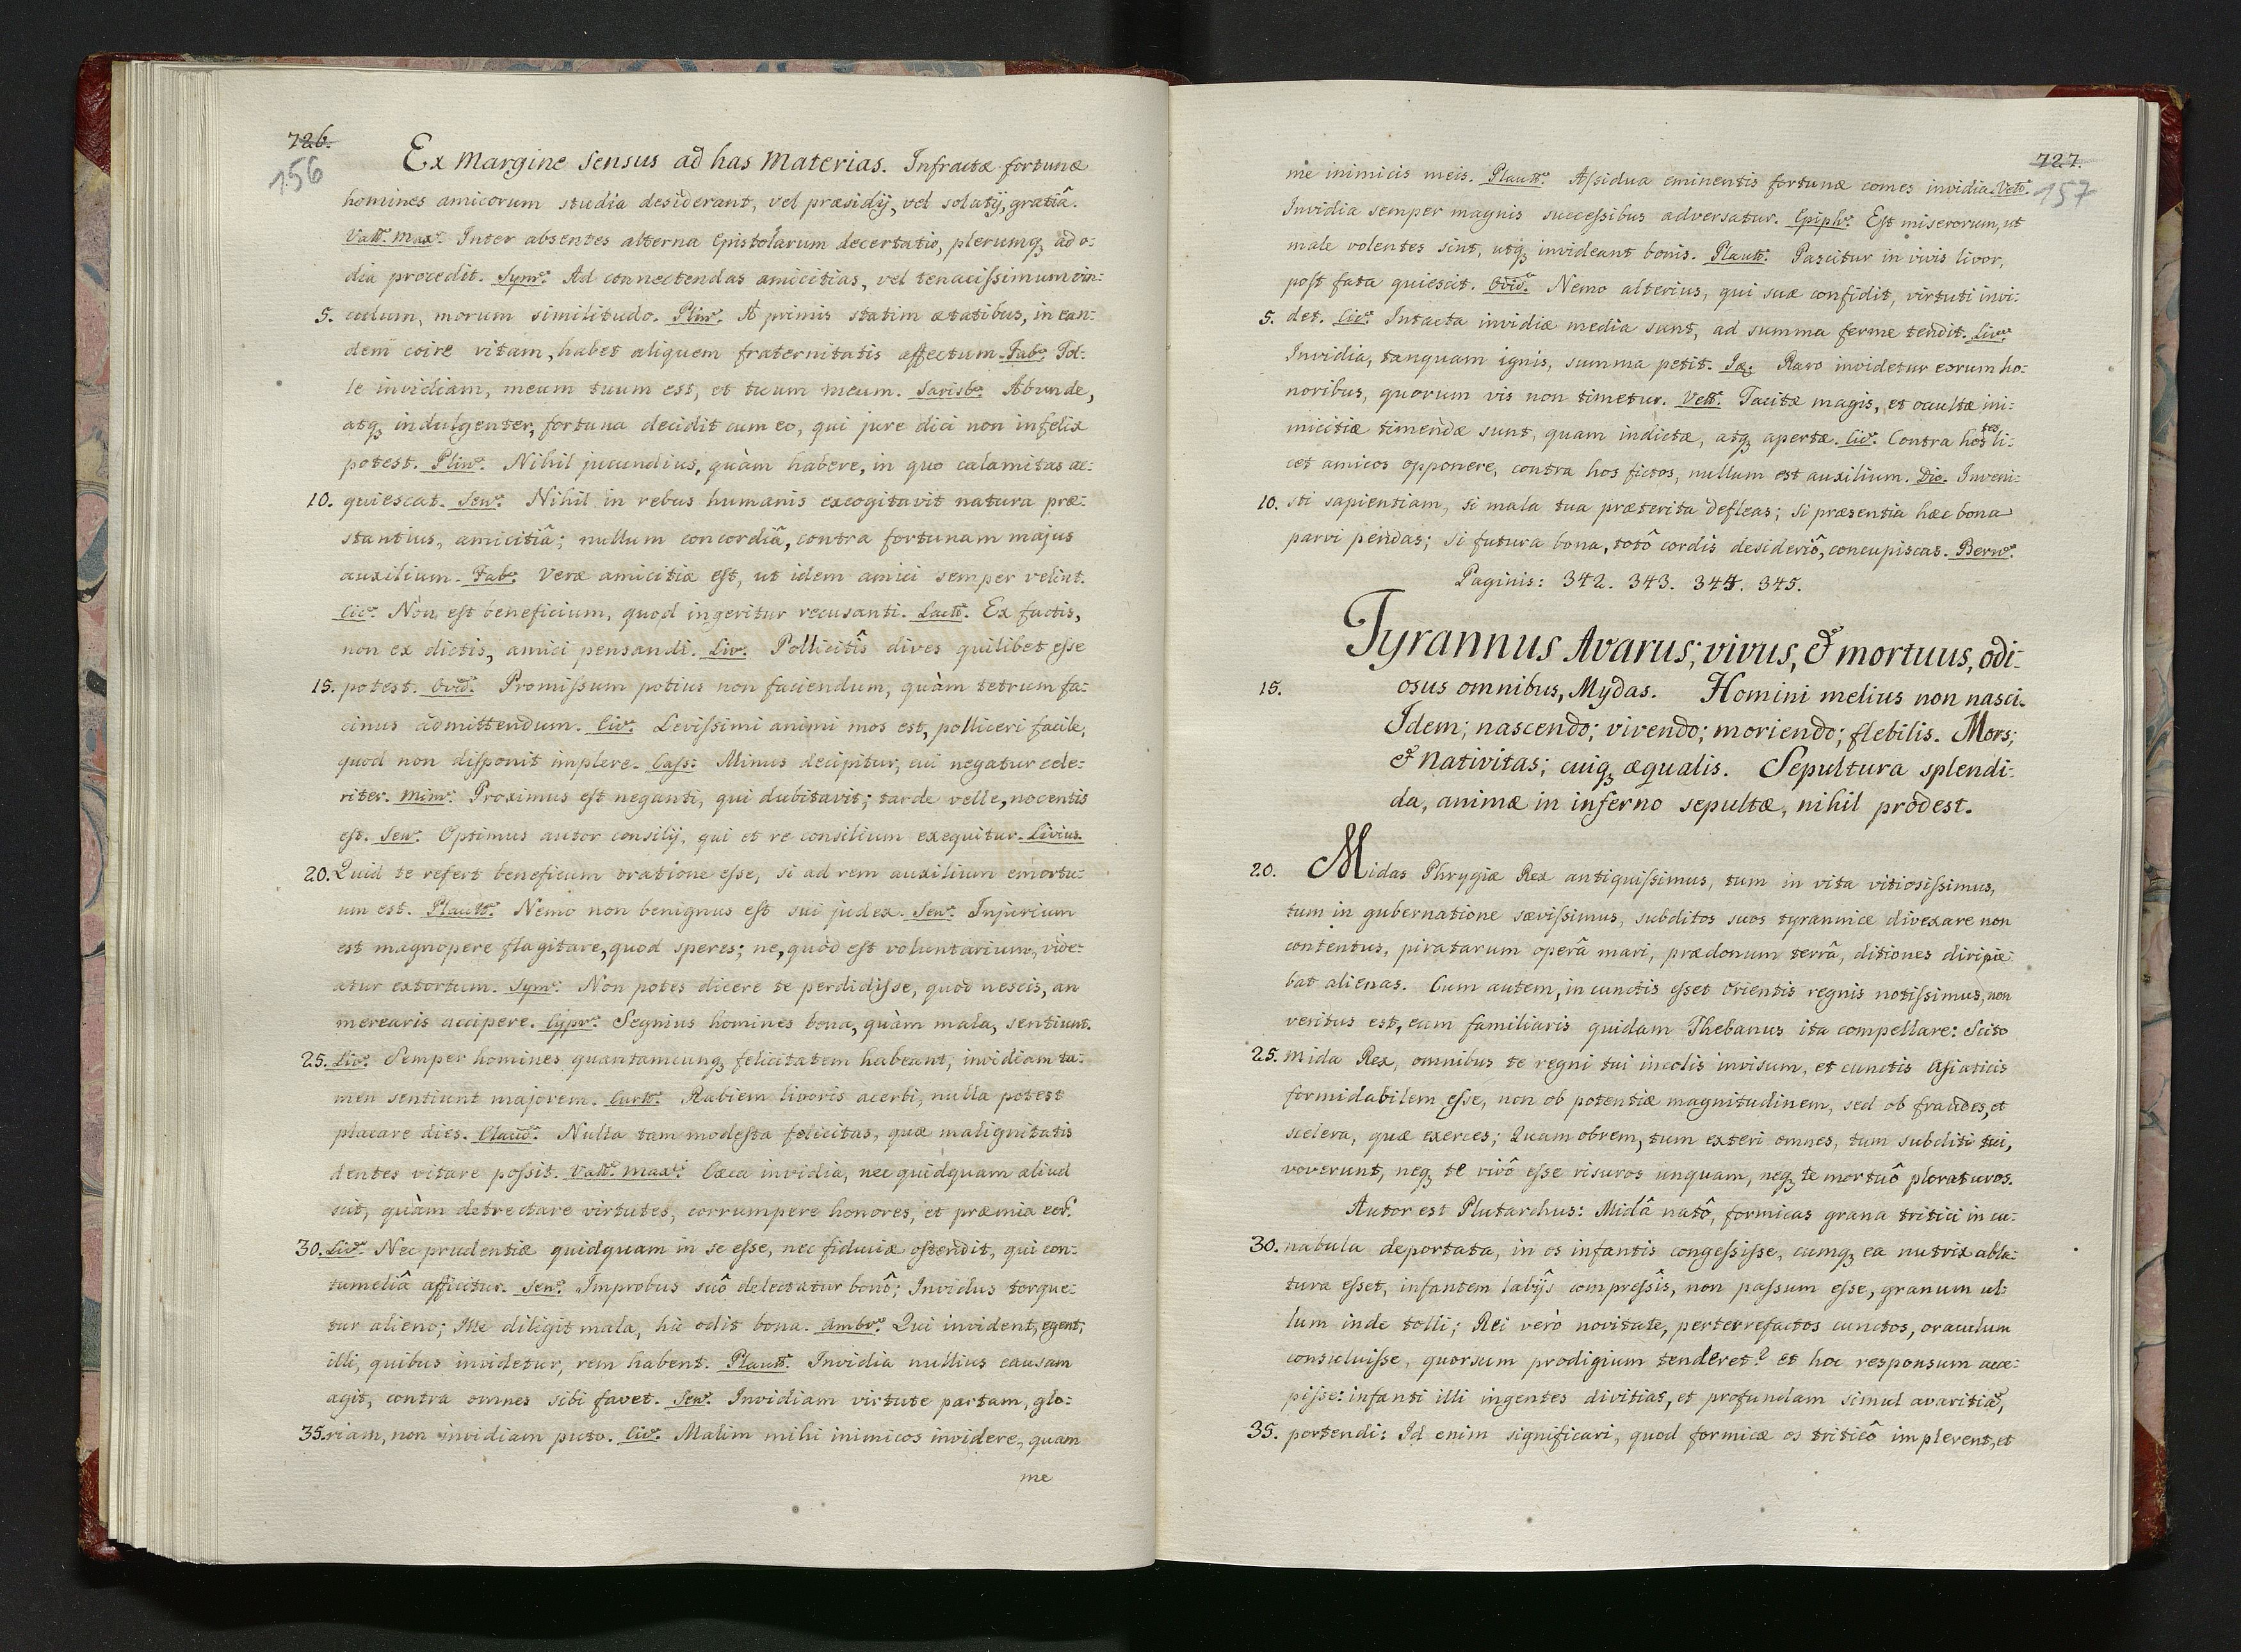 726.
156
Ex Margine Sensus ad has Materias. Infractæ fortunæ
homines amicorum studia desiderant, vel præsidij, vel solatij, gratiâ.
Vall: Max: Inter absentes alterna Epistolarum decertatio, plerumq; ad o:
dia procedit. Sym: Ad connectendas amicitias, vel tenacissimum vin:
5. culum, morum similitudo. Plin: A primis statim ætatibus, in ean:
dem coire vitam, habet aliquem fraternitatis affectum. Fab: Tol:
le invidiam, meum tuum est, et tuum meum. Sarisb: Abunde,
atq; indulgenter, fortuna decidit cum eo, qui jure dici non infelix
potest. Plin: Nihil jucundius, quàm habere, in quo calamitas ac:
10. quiescat. Sen: Nihil in rebus humanis excogitavit natura præ:
stantius, amicitiâ; nullum concordiâ, contra fortunam majus
auxilium. Fab: Veræ amicitiæ est, ut idem amici semper velint.
Cic: Non est beneficium, quod ingeritur recusanti. Lact: Ex factis,
non ex dictis, amici pensandi. Liv: Pollicitîs dives quilibet esse
15. potest. Ovid: Promissum potius non faciendum, quàm tetrum fa:
cinus admittendum. Cic: Levissimi animi mos est, polliceri facile,
quod non disponit implere. Cass: Minus decipitur, cui negatur cele:
riter. Mim: Proximus est neganti, qui dubitavit; tarde velle, nocentis
est. Sen: Optimus autor consilij, qui et re consilium exequitur. Livius.
20. Quid te refert beneficum oratione esse, si ad rem auxilium emortu:
um est. Plaut: Nemo non benignus est sui judex. Sen: Injurium
est magnopere flagitare, quod speres; ne, quod est voluntarium, vide:
atur extortum. Sym: Non potes dicere te perdidisse, quod nescis, an
merearis accipere. Cypr: Segnius homines bona, quàm mala, sentiunt.
25. Liv: Semper homines quantamcunq; felicitatem habeant, invidiam ta:
men sentiunt majorem. Curt: Rabiem livoris acerbi, nulla potest
placare dies. Claud: Nulla tam modesta felicitas, quæ malignitatis
dentes vitare possit. Vall: Max: Cæca invidia, nec quidquam aliud
scit, quàm detrectare virtutes, corrumpere honores, et præmia eor:
30. Liv: Nec prudentiæ quidquam in se esse, nec fiduciæ ostendit, qui con:
tumeliâ afficitur. Sen: Improbus suô delectatur bonô; Invidus torque:
tur alieno; Ille diligit mala, hic odit bona. Ambr: Qui invident, egent;
illi, quibus invidetur, rem habent. Plaut: Invidia nullius causam
agit, contra omnes sibi favet. Sen: Invidiam virtute partam, glo:
35. riam, non invidiam puto. Cic: Malim mihi inimicos invidere, quam
me
727.
157
me inimicis meis. Plaut: Assidua eminentis fortunæ comes invidia. Vell:
Invidia semper magnis successibus adversatur. Epiph: Est miserorum, ut
male volentes sint, utq; invideant bonis. Plaut: Pascitur in vivis livor,
post fata quiescit. Ovid: Nemo alterius, qui suæ confidit, virtuti invi:
5. det. Cic: Intacta invidiæ media sunt, ad summa ferme tendit. Liv:
Invidia, tanquam ignis, summa petit. Raro invidetur eorum ho:
noribus, quorum vis non timetur. Vell: Tacitæ magis, et ocultæ ini:
micitiæ timendæ sunt, quam indictæ, atq; apertæ. Cic: Contra hostes li:
cet amicos opponere, contra hos fictos, nullum est auxilium. Dio. Inveni:
10. sti sapientiam, si mala tua præterita defleas; si præsentia hæc bona
parvi pendas; si futura bona, totô cordis desideriô, concupiscas. Bern:
Paginis: 342. 343. 344. 345.
Tyrannus Avarus; vivus, & mortuus, odi:
15. osus omnibus, Mydas. Homini melius non nasci.
Idem; nascendo; vivendo; moriendo; flebilis. Mors;
& Nativitas; cuiq; æqualis. Sepultura splendi:
da, animæ in inferno sepultæ, nihil prodest.
20. Midas Phrygiæ Rex antiquissimus, tum in vita vitiosissimus,
tum in gubernatione sævissimus, subditos suos tyrannice divexare non
contentus, piratarum operâ mari, prædonum terrâ, ditiones diripie:
bat alienas. Cum autem, in cunctis esset Orientis regnis notissimus, non
veritus est, eum familiaris quidam Thebanus ita compellare: Scito
25. Mida Rex, omnibus te regni tui incolis invisum, et cunctis Asiaticis
formidabilem esse, non ob potentiæ magnitudinem, sed ob fraudes, et
scelera, quæ exerces; Quam obrem, tum exteri omnes, tum subditi tui,
voverunt, neq; te vivô esse risuros unquam, neq; te mortuô ploraturos.
Autor est Plutarchus: Midâ natô, formicas grana tritici in cu:
30. nabula deportata, in os infantis congessisse, cumq; ea nutrix abla:
tura esset, infantem labijs compressîs, non passum esse, granum ul:
lum inde tolli; Rei verò novitate, perterrefactos cunctos, oraculum
consuluisse, quorsum prodigium tenderet? et hoc responsum acce:
pisse: infanti illi ingentes divitias, et profundam simul avaritiâ,
35. portendi: Id enim significari, quod formicæ os triticô implerent, et